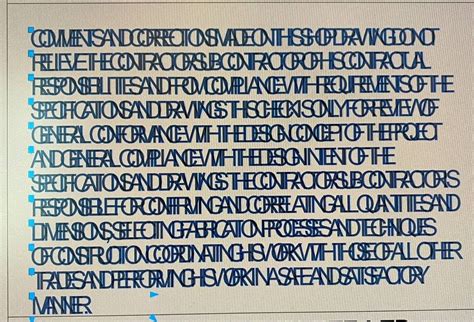 COMMENTS AND CORRECTIONS MADE ON THIS SHOP DRAWING DO NOT
RELIEVE THE CONTRACTOR/SUBCONTRACTOR OF HIS CONTRACTUAL
RESPONSIBILITIES AND FROM COMPLIANCE WITH REQUIREMENTS OF THE
SPECIFICATIONS AND DRAWINGS. THIS CHECK IS ONLY FOR REVIEW OF
GENERAL CONFORMANCE WITH THE DESIGN CONCEPT OF THE PROJECT
AND GENERAL COMPLIANCE WITH THE DESIGN INTENT OF THE
SPECIFICATIONS AND DRAWINGS. THE CONTRACTOR/SUBCONTRACTOR IS
RESPONSIBLE FOR CONFIRMING AND CORRELATING ALL QUANTITIES AND
DIMENSIONS, SELECTING FABRICATION PROCESSES AND TECHNIQUES
OF CONSTRUCTION COORDINATING HIS WORK WITH THOSE OF ALL OTHER
TRADES AND PERFORMING HIS WORK IN A SAFE AND SATISFACTORY
MANNER.